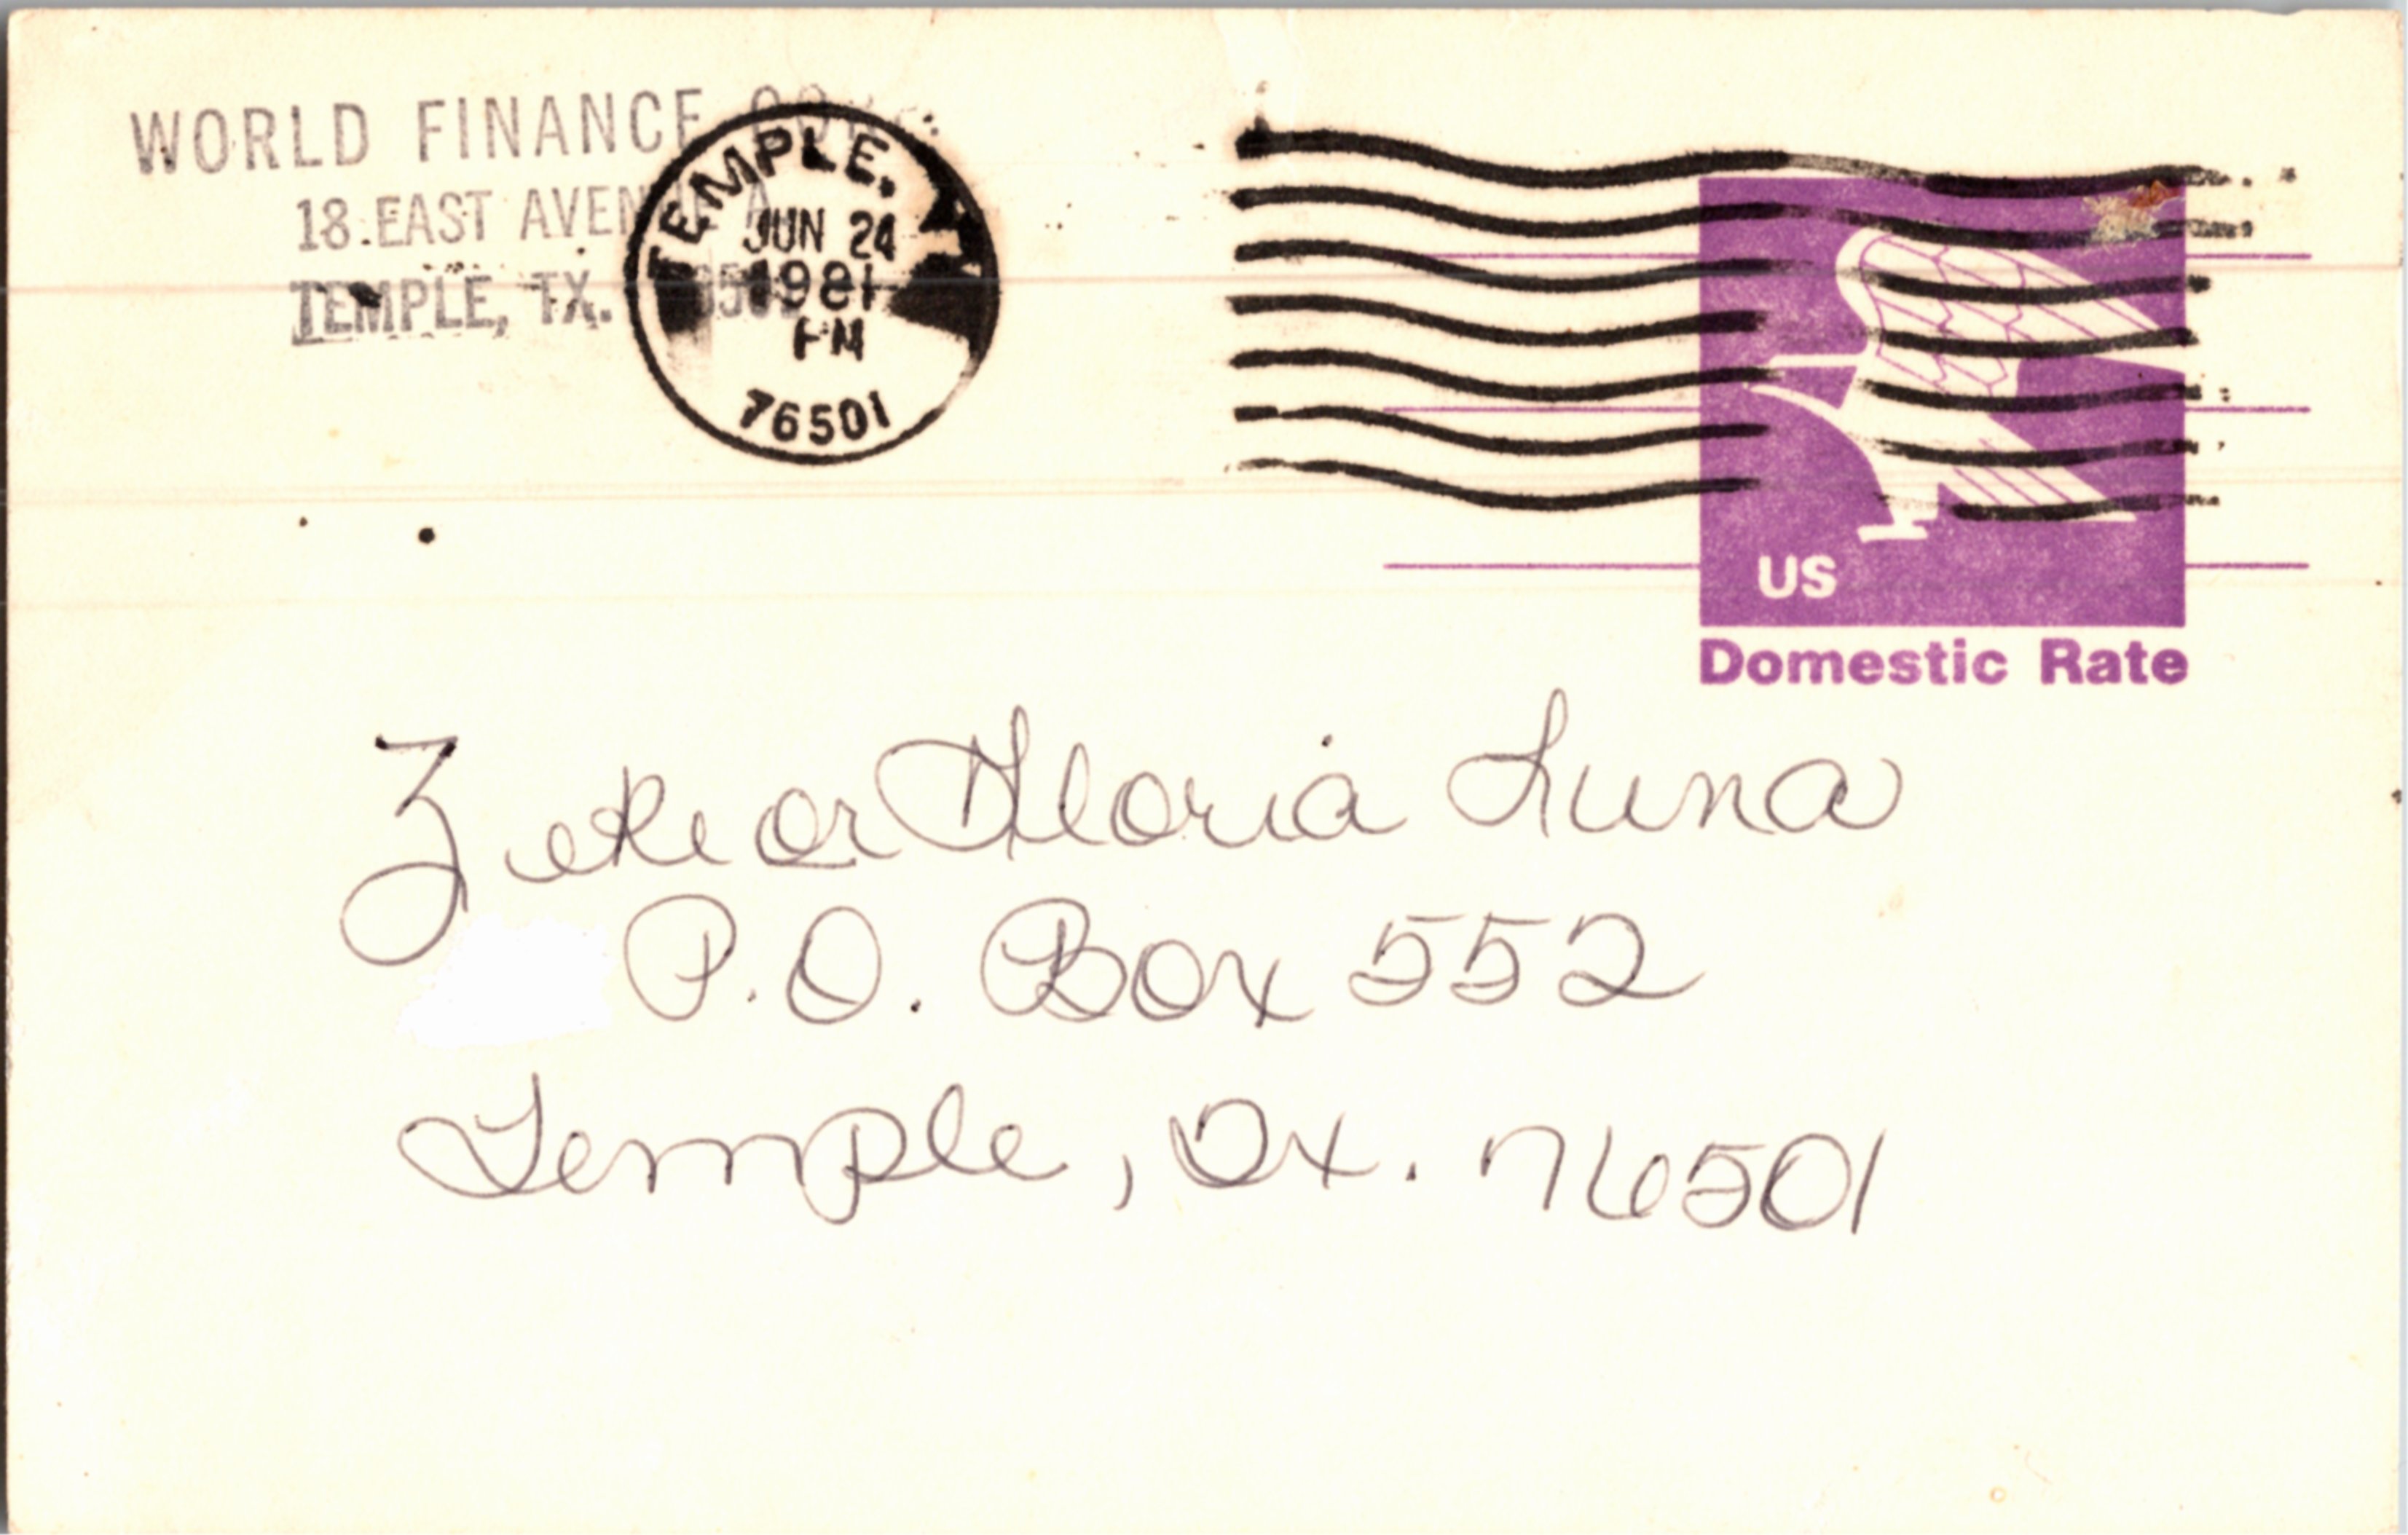 WORLD FINANCE
18 EAST AVEN A
TEMPLE, TX.
TEMPLE,
JUN 24
1981
PM
76501
US
Domestic Rate
Zeke or Gloria Luna
P.O. Box 552
Temple, Tx. 76501